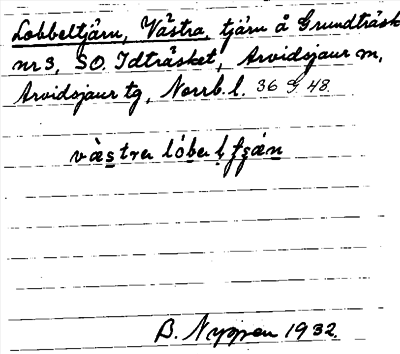 Lobbeltjärn, Västra, tjärn å Grundträsk
nr 3, SO Idträsket, Arvidsjaur sn,
Arvidsjaur tg, Norrb. l. 36 G 48
B. Nyppen 1932.